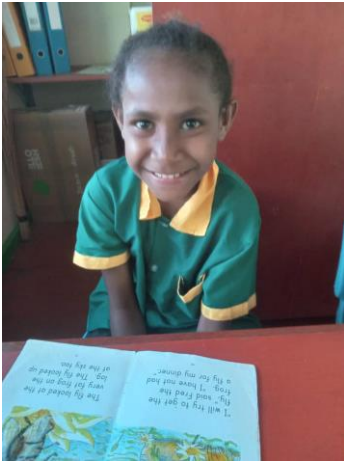 "I will try to get the
fly," said Fred the
frog. "I have not had
a fly for my dinner."
The fly looked at the
very fat frog on the
log. The fly looked up
at the sky too.